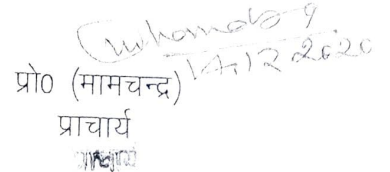 14.12.2020
प्रो० (मामचन्द्र)
प्राचार्य